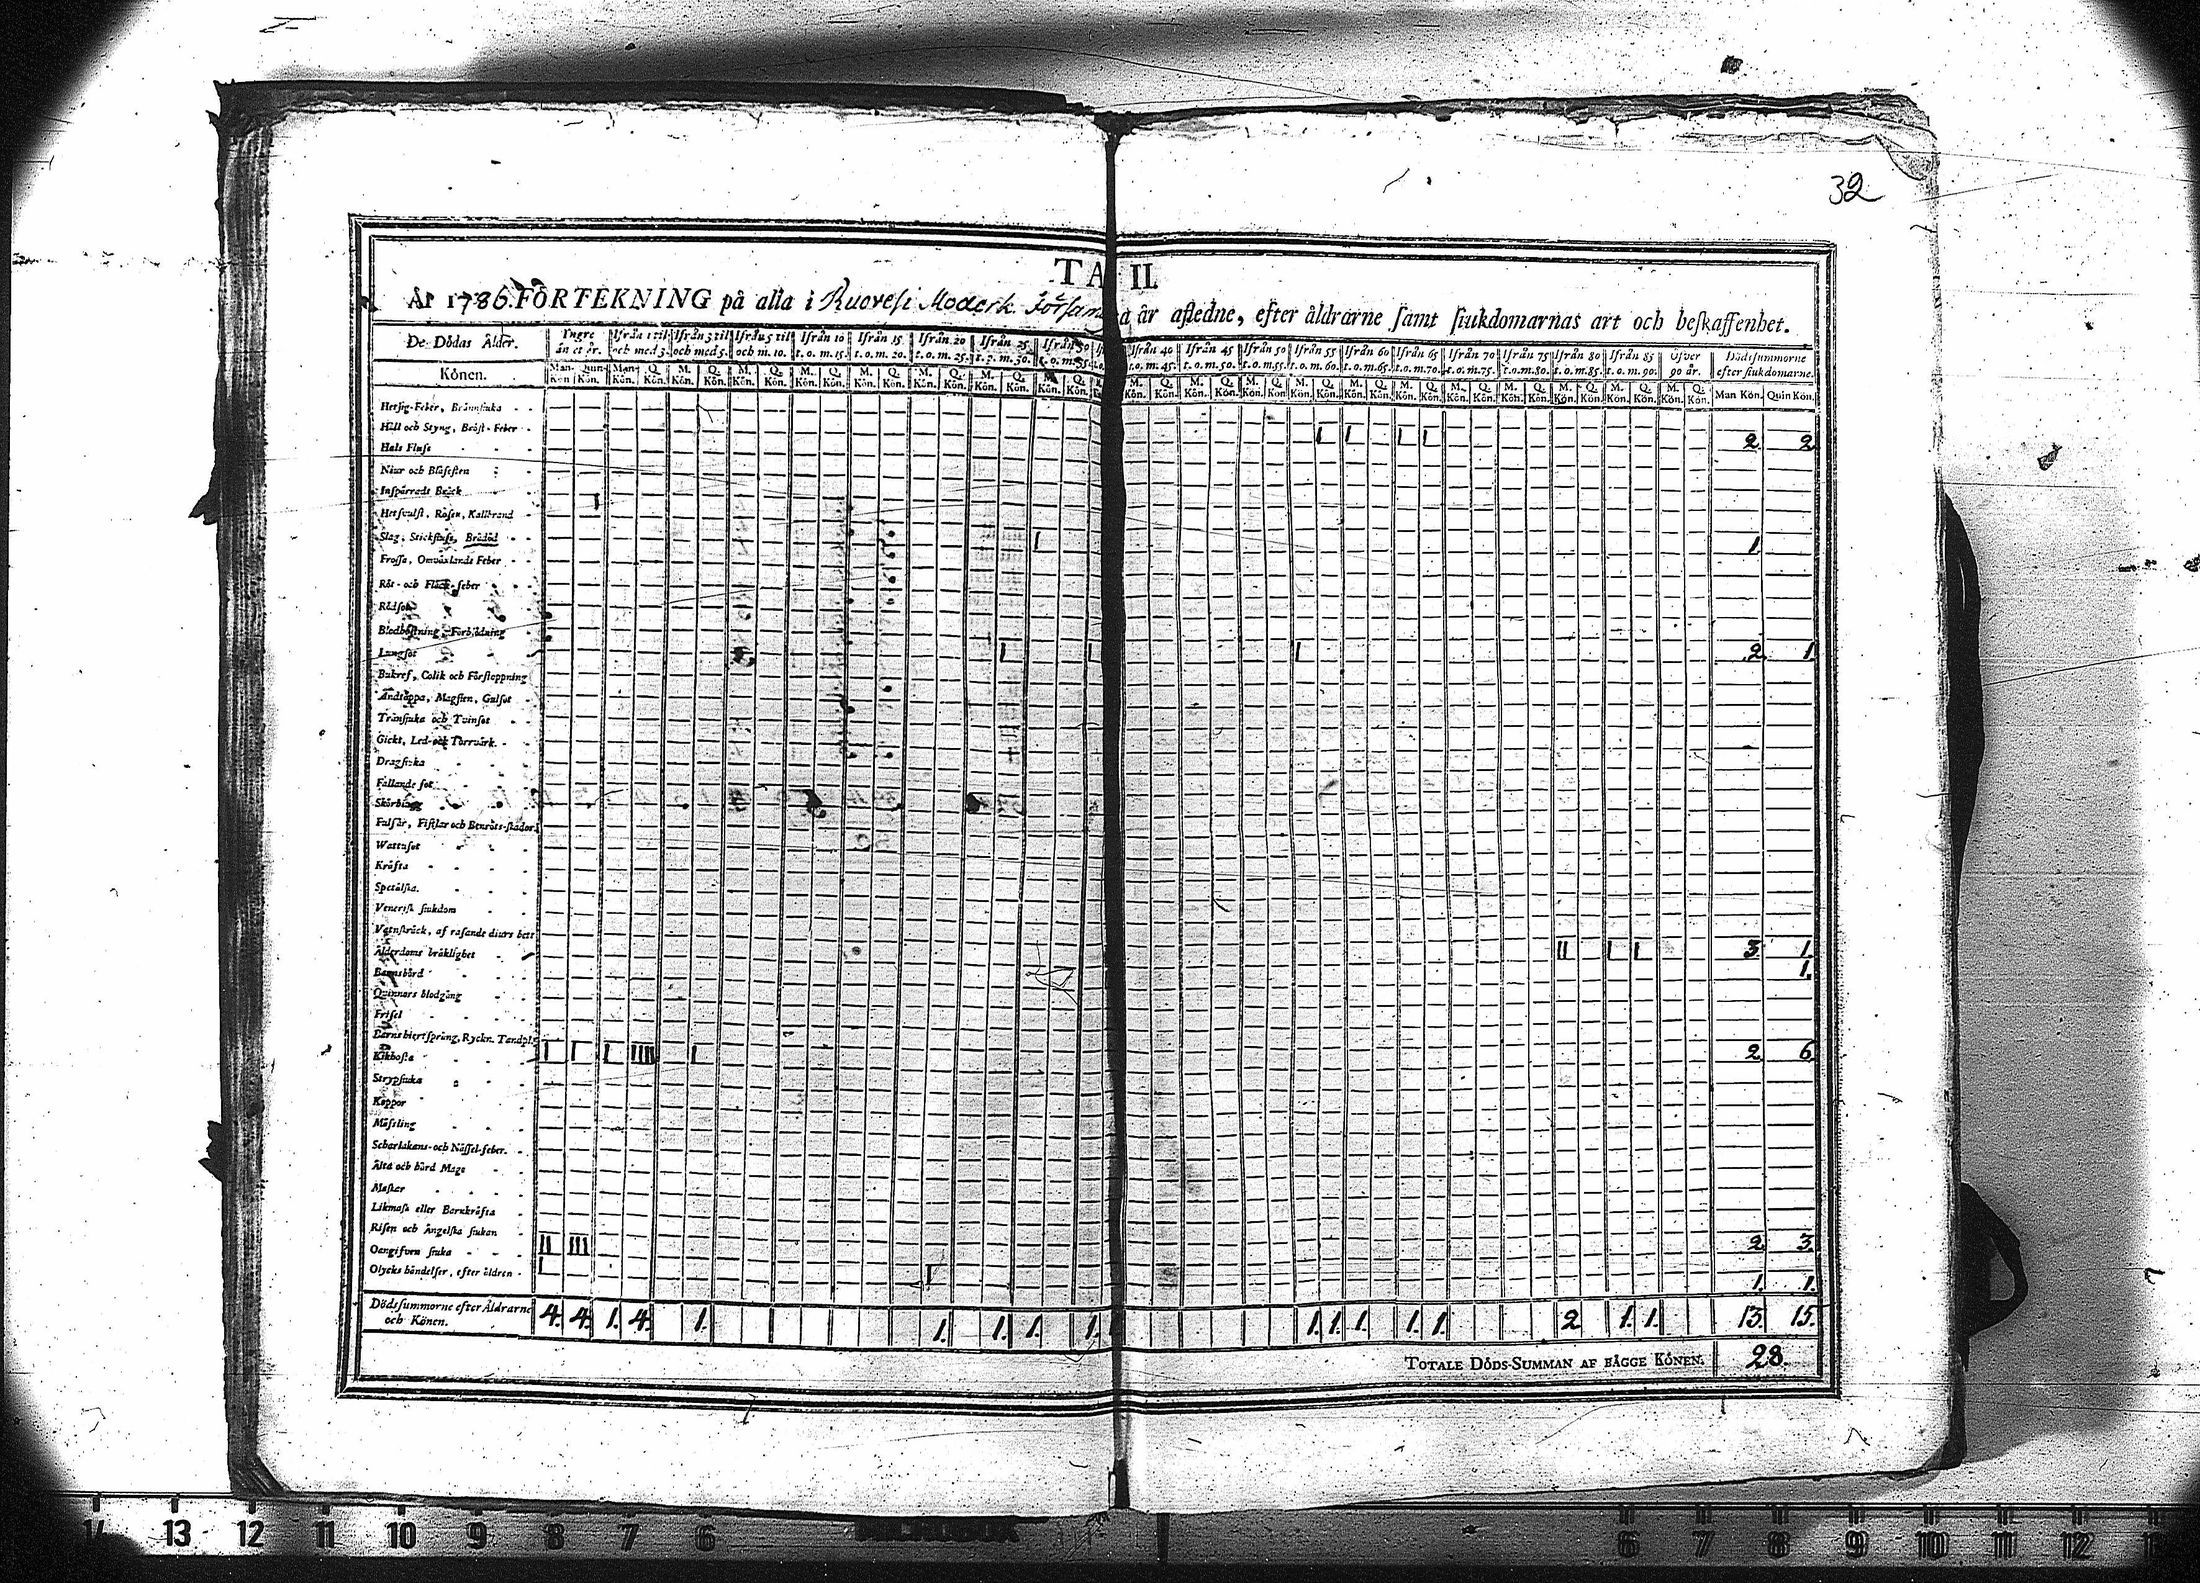 32
TA II.
År 1786. FÖRTEKNING på alla i Ruovesi Moderk. Försam a år afledne, efter åldrarne samt siukdomarnas art och beskaffenhet.
De Dödas Ålder. Yngre än et år. Ifrån 1 til och med 3. Ifrån 3 til och med 5. Ifrån 5 til och m. 10. Ifrån 10 t. o. m. 15. Ifrån 15 t. o. m. 20. Ifrån 20 t. o. m. 25. Ifrån 25 t. o. m. 30. Ifrån 30 t. o. m. 35. Ifrån 40 t. o. m. 45. Ifrån 45 t. o. m. 50. Ifrån 50 t. o. m. 55. Ifrån 55 t. o. m. 60. Ifrån 60 t. o. m. 65. Ifrån 65 t. o. m. 70. Ifrån 70 t. o. m. 75. Ifrån 75 t. o. m. 80. Ifrån 80 t. o. m. 85. Ifrån 85 t. o. m. 90. Öfver 90 år. Dödssummorne efter siukdomarne.
Könen. Man-Kön Quin-Kön. Man-Kön. Q. Kön. M. Kön. Q. Kön. Man Kön. Quin Kön.
Hetsig-Feber, Brännsiuka
Håll och Styng, Bröst-Feber 2 2
Hals Fluss
Niur och Blåsesten
Inspärrade Bråck
Hetsvulst, Rosen, Kallbrand
Slag, Stickfluss, Brådöd 1
Frossa, Omväxlande Feber
Röt- och Fläck-feber
Rödsot
Blodhostning, Förblödning
Lungsot 2 1.
Bukref, Colik och Förstoppning
Andtäppa, Magsten, Gulsot
Tränsiuka och Tvinsot
Gickt, Led- och Torrvärk.
Dragsiuka
Fallande sot
Skörbiugg
Fulsår, Fistlar och Benröts-skador
Wattusot
Kräfta
Spetälska.
Venerisk siukdom
Vatuskräck, af rasande diurs bett
Ålderdoms bräklighet 3 1.
Barnsbörd 1.
Quinnors blodgång
Frisel
Barns hiertsprång, Ryckn. Tandpl.
Kikhosta 2 6.
Strypsiuka
Koppor
Mässling
Scharlakans- och Nässel-feber.
Älta och hård Mage
Maskar
Likmask eller Barnkräfta
Risen och Ängelska siukan
Oangifven siuka 2 3.
Olycks händelser, efter åldren 1. 1.
Dödssummorne efter Åldrarne och Könen. 4. 4. 1. 4. 1. 1. 1. 1. 1. 1. 1. 1. 1. 1. 2 1. 1. 13. 15.
TOTALE DÖDS-SUMMAN AF BÅGGE KÖNEN. 28.
14 13 12 11 10 9 8 7 6 6 7 8 9 10 11 12 13